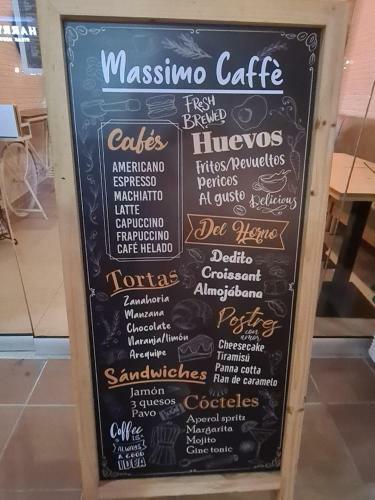 HARRY
Massimo Caffè
FRESH
BREWED
Cafés
AMERICANO
ESPRESSO
MACHIATTO
LATTE
CAPUCCINO
FRAPUCCINO
CAFÉ HELADO
Huevos
Fritos/Revueltos
Pericos
Al gusto
Delicious
Del Horno
Dedito
Croissant
Almojábana
Tortas
Zanahoria
Manzana
Chocolate
Naranja/limón
Arequipe
Postres
con amor
Cheesecake
Tiramisú
Panna cotta
Flan de caramelo
Sándwiches
Jamón
3 quesos
Pavo
Cócteles
Aperol spritz
Margarita
Mojito
Gine tonic
Coffee
IS
ALWAYS
A GOOD
IDEA